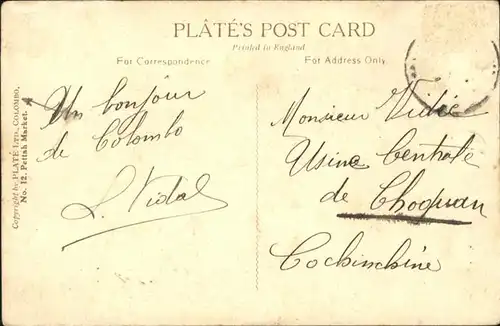 PLÂTÉ'S POST CARD
Printed in England
For Correspondence
For Address Only.
Copyright by PLATÉ LTD., COLOMBO.
No. 12. Pettah Market.
Un bonjour
de Colombo
L. Vidal
Monsieur
Usine Centrale
de Choquan
Cochinchine